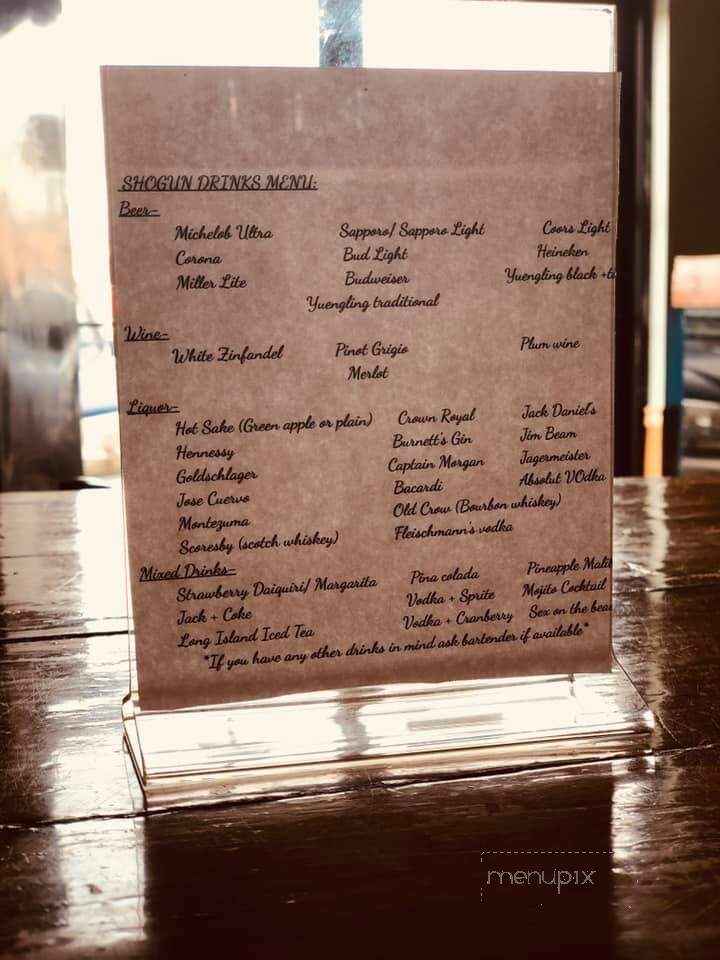 SHOGUN DRINKS MENU:
Beer-
Michelob Ultra Sapporo/ Sapporo Light Coors Light
Corona Bud Light Heineken
Miller Lite Budweiser Yuengling black +
Yuengling traditional
Wine-
White Zinfandel Pinot Grigio Plum wine
Merlot
Liquor-
Hot Sake (Green apple or plain) Crown Royal Jack Daniel's
Hennessy Burnett's Gin Jim Beam
Goldschlager Captain Morgan Jagermeister
Jose Cuervo Bacardi Absolut VOdka
Montezuma Old Crow (Bourbon whiskey)
Scoresby (scotch whiskey) Fleischmann's vodka
Mixed Drinks-
Strawberry Daiquiri/ Margarita Pina colada Pineapple
Jack + Coke Vodka + Sprite Mojito Cocktail
Long Island Iced Tea Vodka + Cranberry Sex on the
*If you have any other drinks in mind ask bartender if available*
menupix